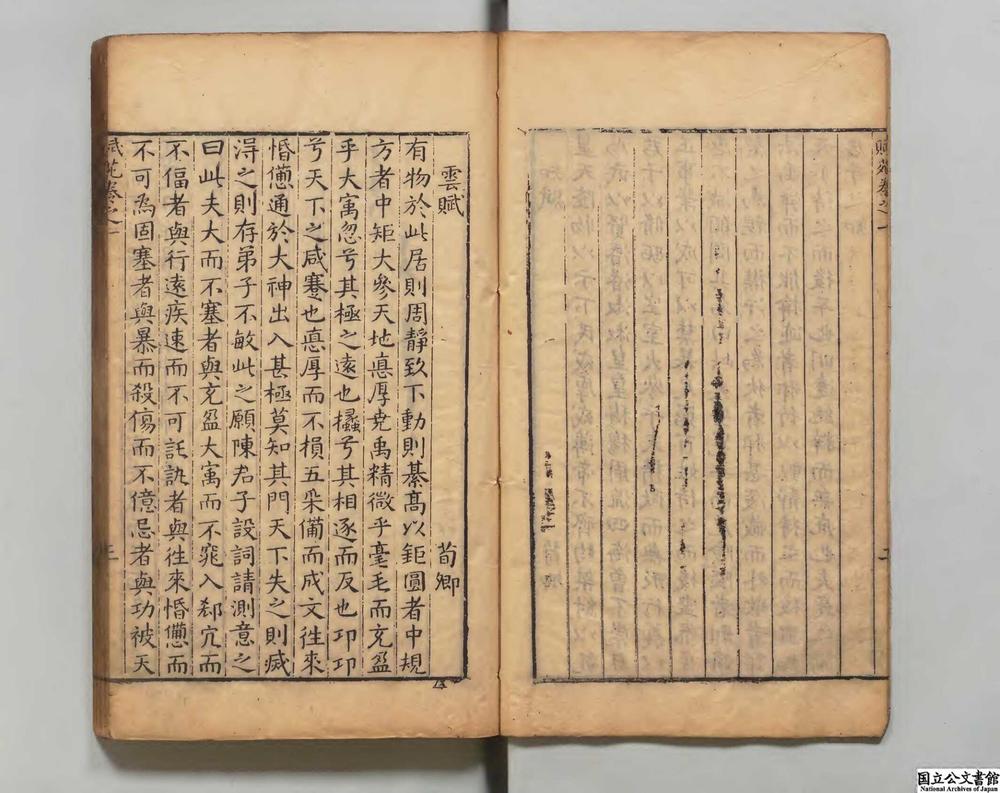 賦苑卷之一
雲賦 荀卿
有物於此居則周靜致下動則綦髙以鉅圓者中規
方者中矩大參天地悳厚尭禹精微乎毫毛而充盈
乎大寓忽兮其極之逺也攭兮其相逐而反也卬卬
兮天下之咸蹇也悳厚而不損五采備而成文徃來
惛憊通於大神出入甚極莫知其門天下失之則滅
淂之則存弟子不敏此之願陳君子設詞請測意之
曰此夫大而不塞者與充盈大寓而不窕入郄宂而
不偪者與行逺疾速而不可託訊者與徃來惛憊而
不可為固塞者與暴而殺傷而不億忌者與功被天
賦苑卷之一
三
国立公文書館
National Archives of Japan